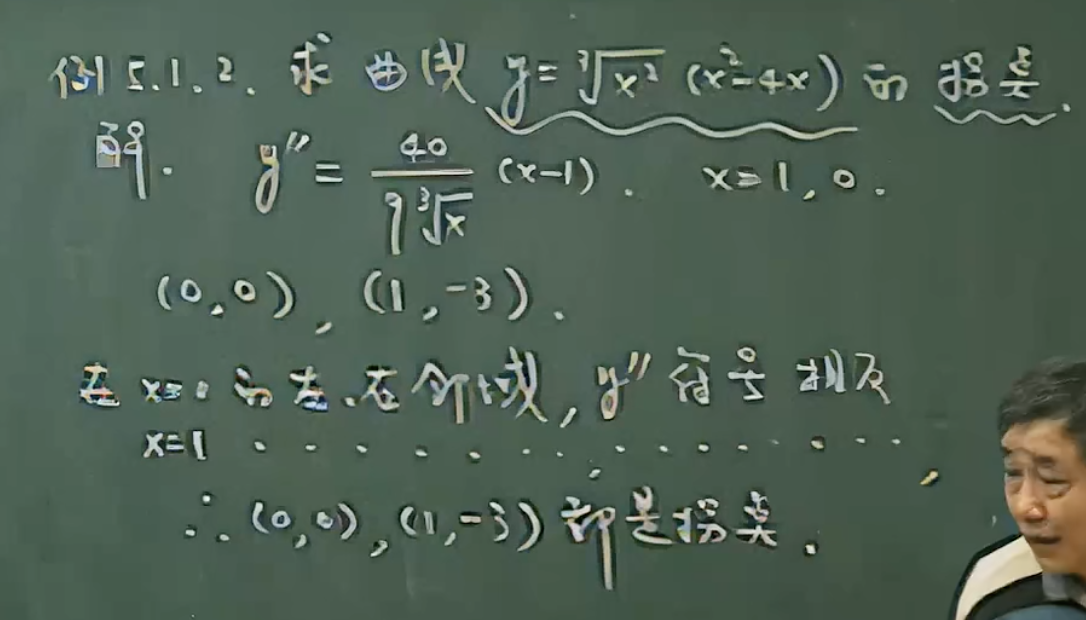 例5.1.2. 求曲线 y=∛x² (x²-4x) 的拐点.
解. y″= 40/(9∛x) (x-1). x=1,0.
(0,0), (1,-3).
在 x=0 的左、右邻域, y″符号相反
x=1 · · · · · · · · · · · · ·
∴ (0,0), (1,-3) 都是拐点.